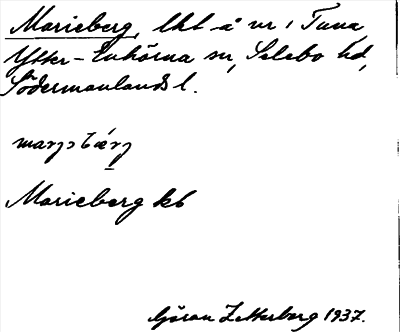 Marieberg, lht å nr 1 Tuna,
Ytter-Enhörna sn, Selebo hd,
Södermanlands l.
Marieberg kb
Göran Zetterberg 1937.